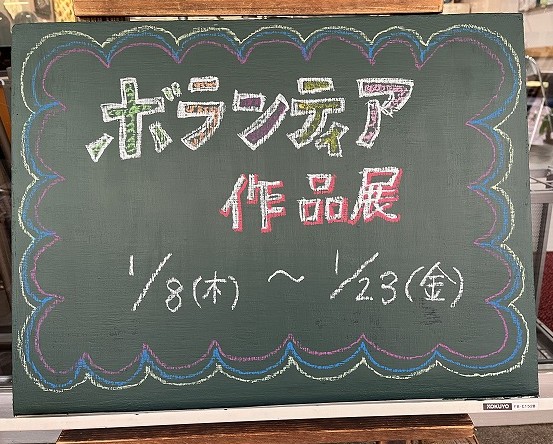 ボランティア
作品展
1/8(木) ～ 1/23(金)
KOKUYO